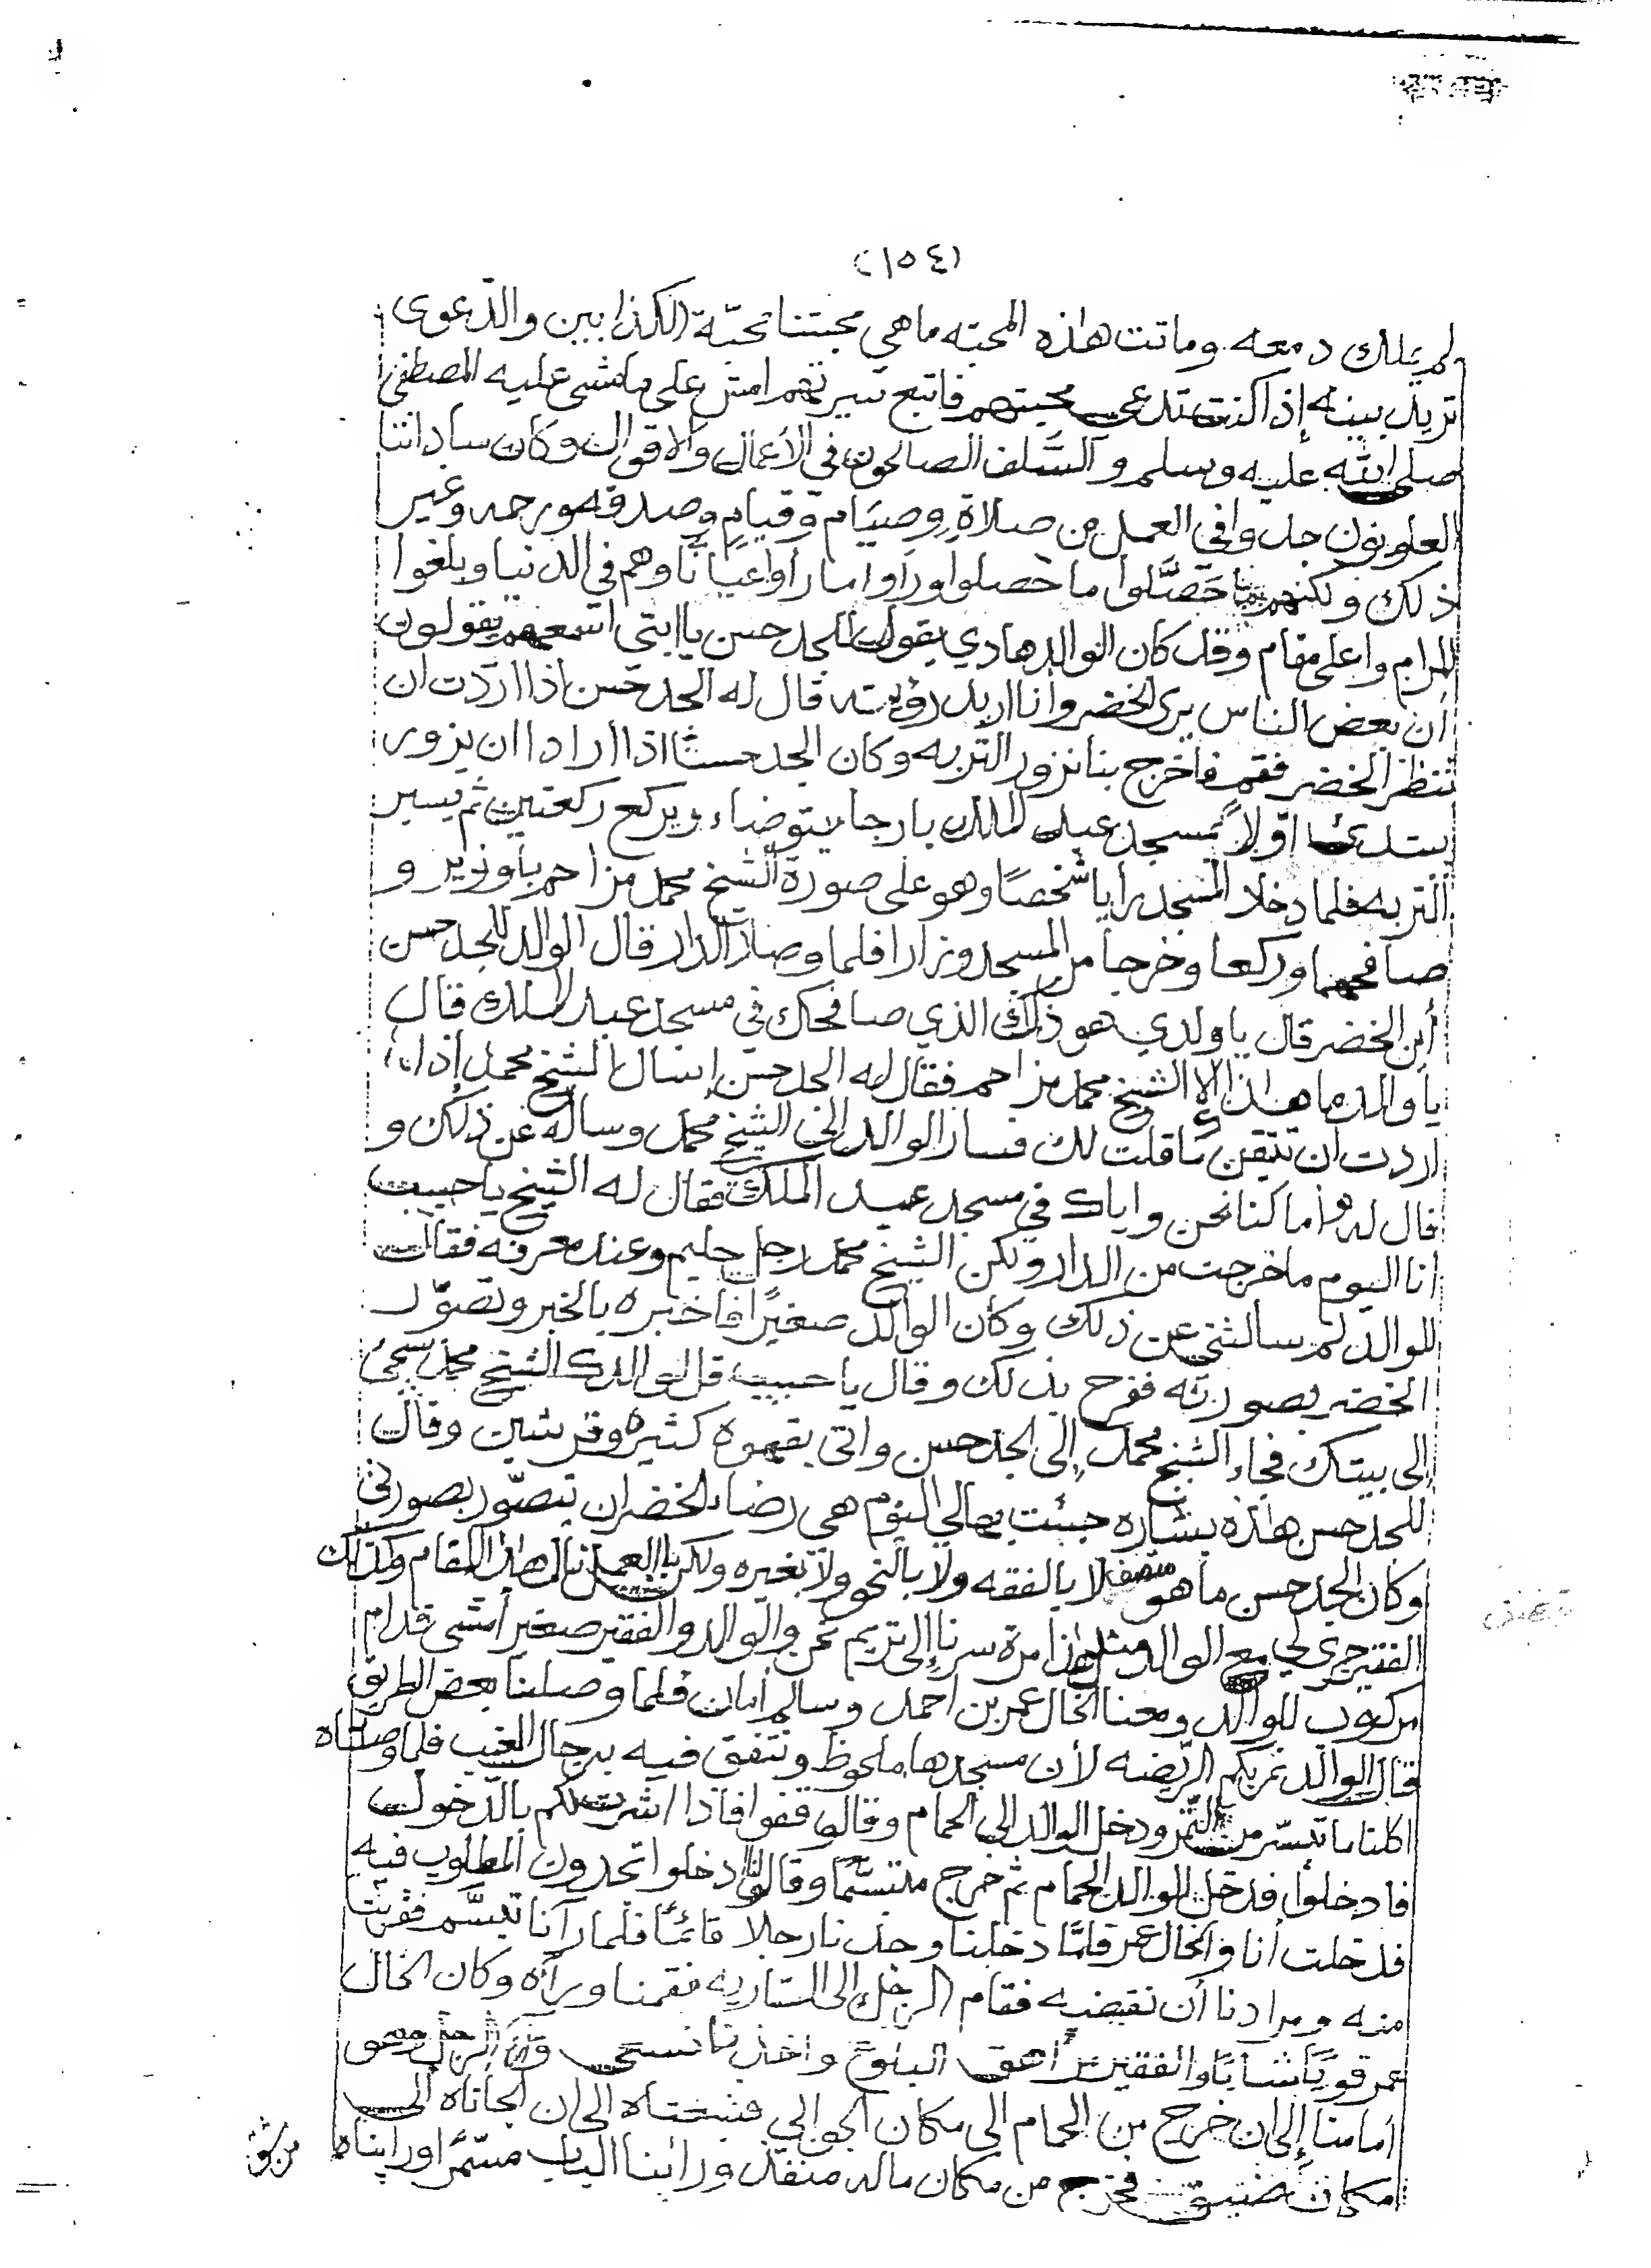 (١٥٤)
لم يملك دمعه وماتت هاذه المحبّه ماهي محبتنا محبّة الكذابين والدّعوى
تريد بينه إذا كنت تدعي محبتهم فاتبع سيرتهم امش على ما مشى عليه المصطفى
صلى الله عليه وسلم والسّلف الصالحون في الأعمال والاقوال وكان ساداتنا
العلويون جدوا في العمل من صلاةٍ وصيام وقيامٍ وصدقه ورحمه وغير
ذلك ولكنهم حصَّلوا ما حصلوا ورأوا ما رأوا عيانًا وهم في الدنيا وبلغوا
المرام واعلى مقام وقد كان الوالد هادي يقول للجد حسن يا ابتي اسمعهم يقولون
أن بعض الناس يرى الخضر وأنا اريد رؤيته قال له الجد حسن اذا اردت ان
تنظر الخضر فقم فاخرج بنا نزور التربه وكان الجد حسنًا اذا أرادا ان يزور
يبتدئ اوّلاً بمسجد عبد الملك بارجا يتوضاء ويركع ركعتين ثم يسير
التربه فلما دخلا المسجد رأيا شخصًا وهو على صورة الشيخ محمد مزاحم باوزير و
صافحهما وركعا وخرجا من المسجد وزارا فلما وصلا الدار قال الوالد للجد حسن
أين الخضر قال يا ولدي هو ذلك الذي صافحك في مسجد عبد الملك قال
يا والد ما هذا إلا الشيخ محمد مزاحم فقال له الجد حسن إسال الشيخ محمد إذا
اردت ان تتيقن ما قلت لك فسار الوالد الى الشيخ محمد وساله عن ذلك و
قال له هو أما كنا نحن واياك في مسجد عبد الملك فقال له الشيخ يا حبيب
أنا اليوم ما خرجت من الدار ولكن الشيخ محمد رجل حليم وعنده معرفه فقال
للوالد لم سالتني عن ذلك وكان الوالد صغيرًا فأخبره بالخبر وتصوّر
الخضر بصورته ففرح بذلك وقال يا حبيب قل لوالدك الشيخ محمد سيجئ
إلى بيتك فجاء الشيخ محمد إلى الجد حسن واتى بقهوة كثيره وقرشين وقال
للجد حسن هاذه بشاره جئت بها لي اليوم هي رضاء الخضر ان تصوّر بصورتي
وكان الجد حسن ما هو متصف لا بالفقه ولا بالنحو ولا بغيره ولكن بالعمل نال هذا المقام وكذلك
الفقير جرى لي مع الوالد مثل هذا مرّة سرنا إلى تريم نحن والوالد والفقير صغير أمشي قدام
مركوب للوالد ومعنا الخال عمر بن احمد وسالم أمان فلما وصلنا بعض الطريق
قال الوالد نمر بكم الريّضه لأن مسجدها ملحوظ ونتفق فيه برجال الغيب فلما وصلناه
اكلنا ما تيسّر من التّمر ودخل الوالد إلى الحمام وقال قفوا فاذا اشرت لكم بالدخول
فادخلوا فدخل الوالد الحمام ثم خرج متبسّمًا وقال لنا ادخلوا تجدون المطلوب فيه
فدخلت أنا والخال عمر فلمّا دخلنا وجدنا رجلا قائمًا فلما رآنا تبسَّم فقربت
منه ومرادنا أن نقبضه فقام الرجل إلى الساريه فقمنا وراه وكان الخال
عمر قويًا شابًا والفقير مراهق البلوغ واخذنا نسحى وكان الرجل وهو
أمامنا إلى ان خرج من الحمام الى مكان الجوابي فتبعناه الى ان الجأناه الى
مكان ضيق فخرج من مكان ماله منفذ ورأينا الباب مسمّرًا ورايناه
من شق